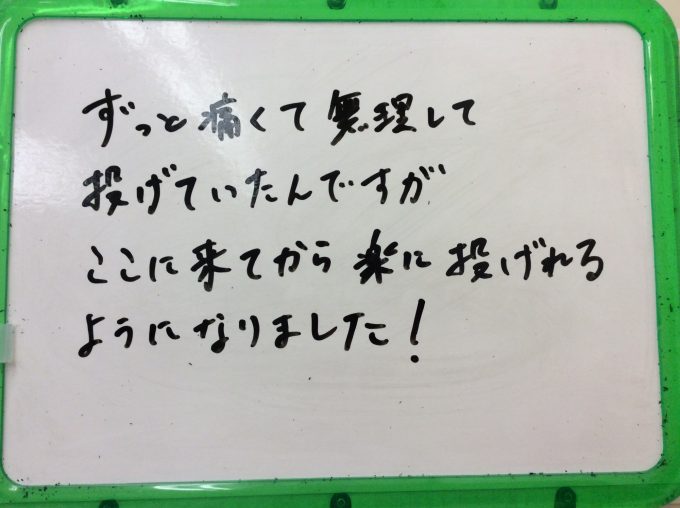 ずっと痛くて無理して
投げていたんですが
ここに来てから楽に投げれる
ようになりました!